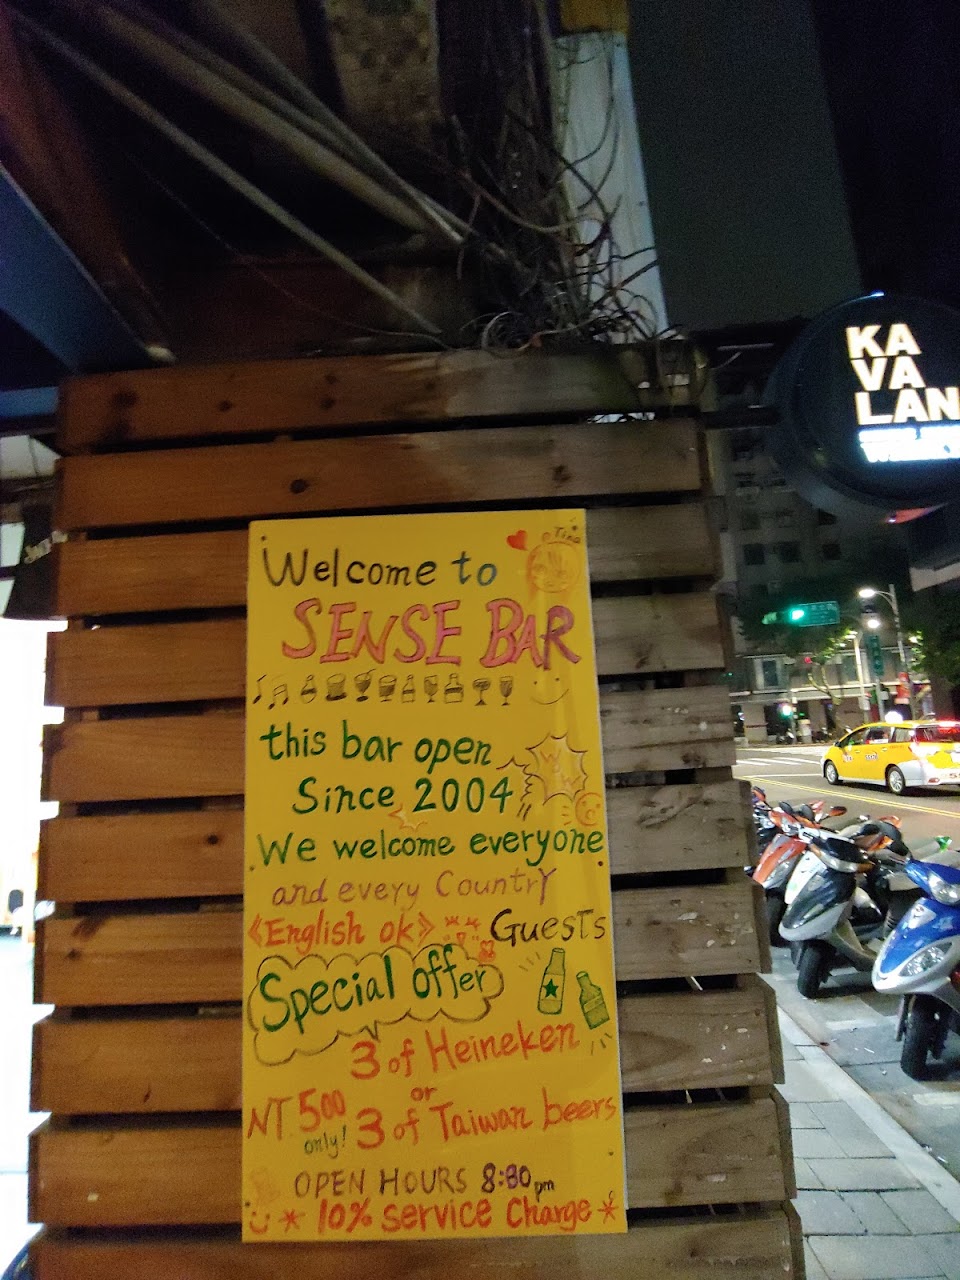 Welcome to
Tina
SENSE BAR
this bar open
Since 2004
We welcome everyone
and every Country
《English ok》 GUESTS
Special offer
3 of Heineken
or
NT. 500
only!
3 of Taiwan beers
OPEN HOURS 8:30 pm
* 10% Service Charge *
KA
VA
LAN